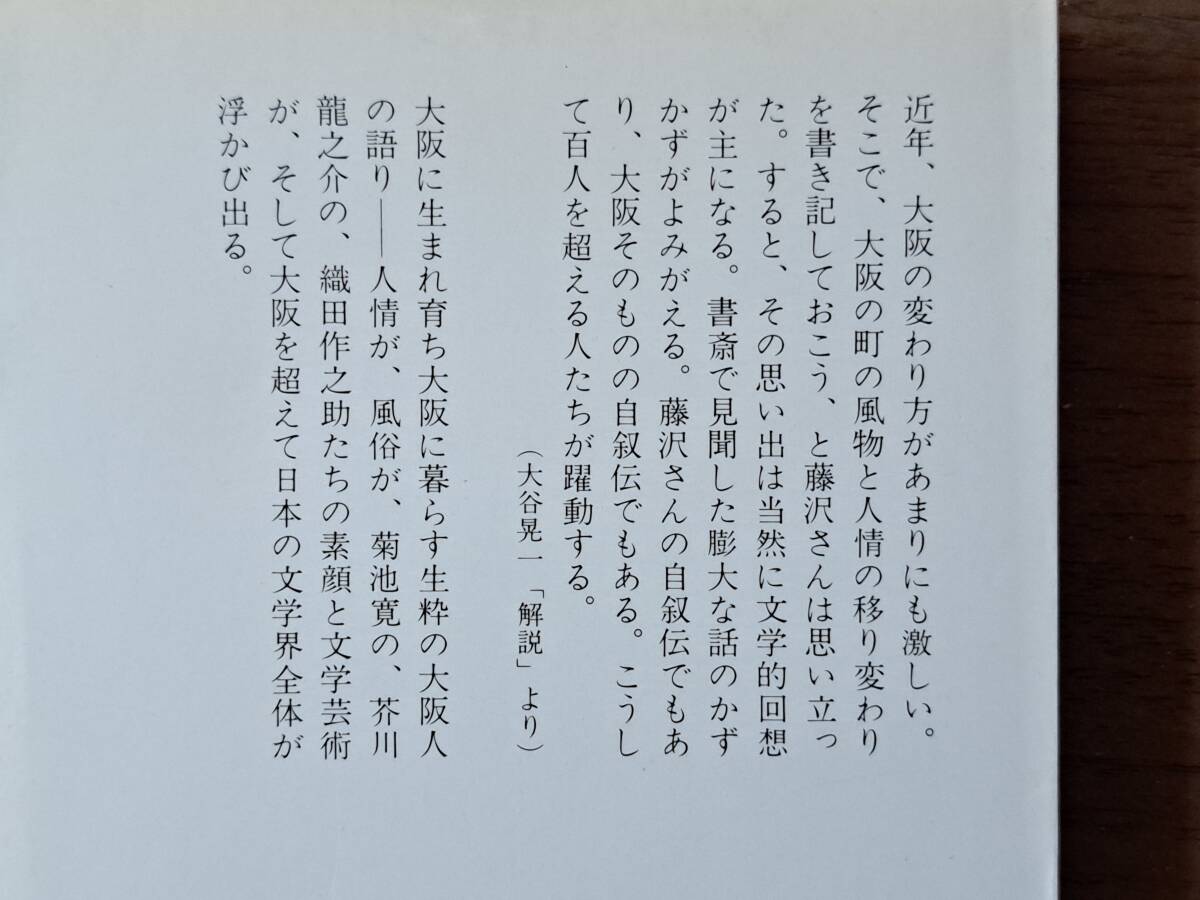 近年、大阪の変わり方があまりにも激しい。
そこで、大阪の町の風物と人情の移り変わり
を書き記しておこう、と藤沢さんは思い立っ
た。すると、その思い出は当然に文学的回想
が主になる。書斎で見聞した膨大な話のかず
かずがよみがえる。藤沢さんの自叙伝でもあ
り、大阪そのものの自叙伝でもある。こうし
て百人を超える人たちが躍動する。
（大谷晃一「解説」より）
大阪に生まれ育ち大阪に暮らす生粋の大阪人
の語り——人情が、風俗が、菊池寛の、芥川
龍之介の、織田作之助たちの素顔と文学芸術
が、そして大阪を超えて日本の文学界全体が
浮かび出る。